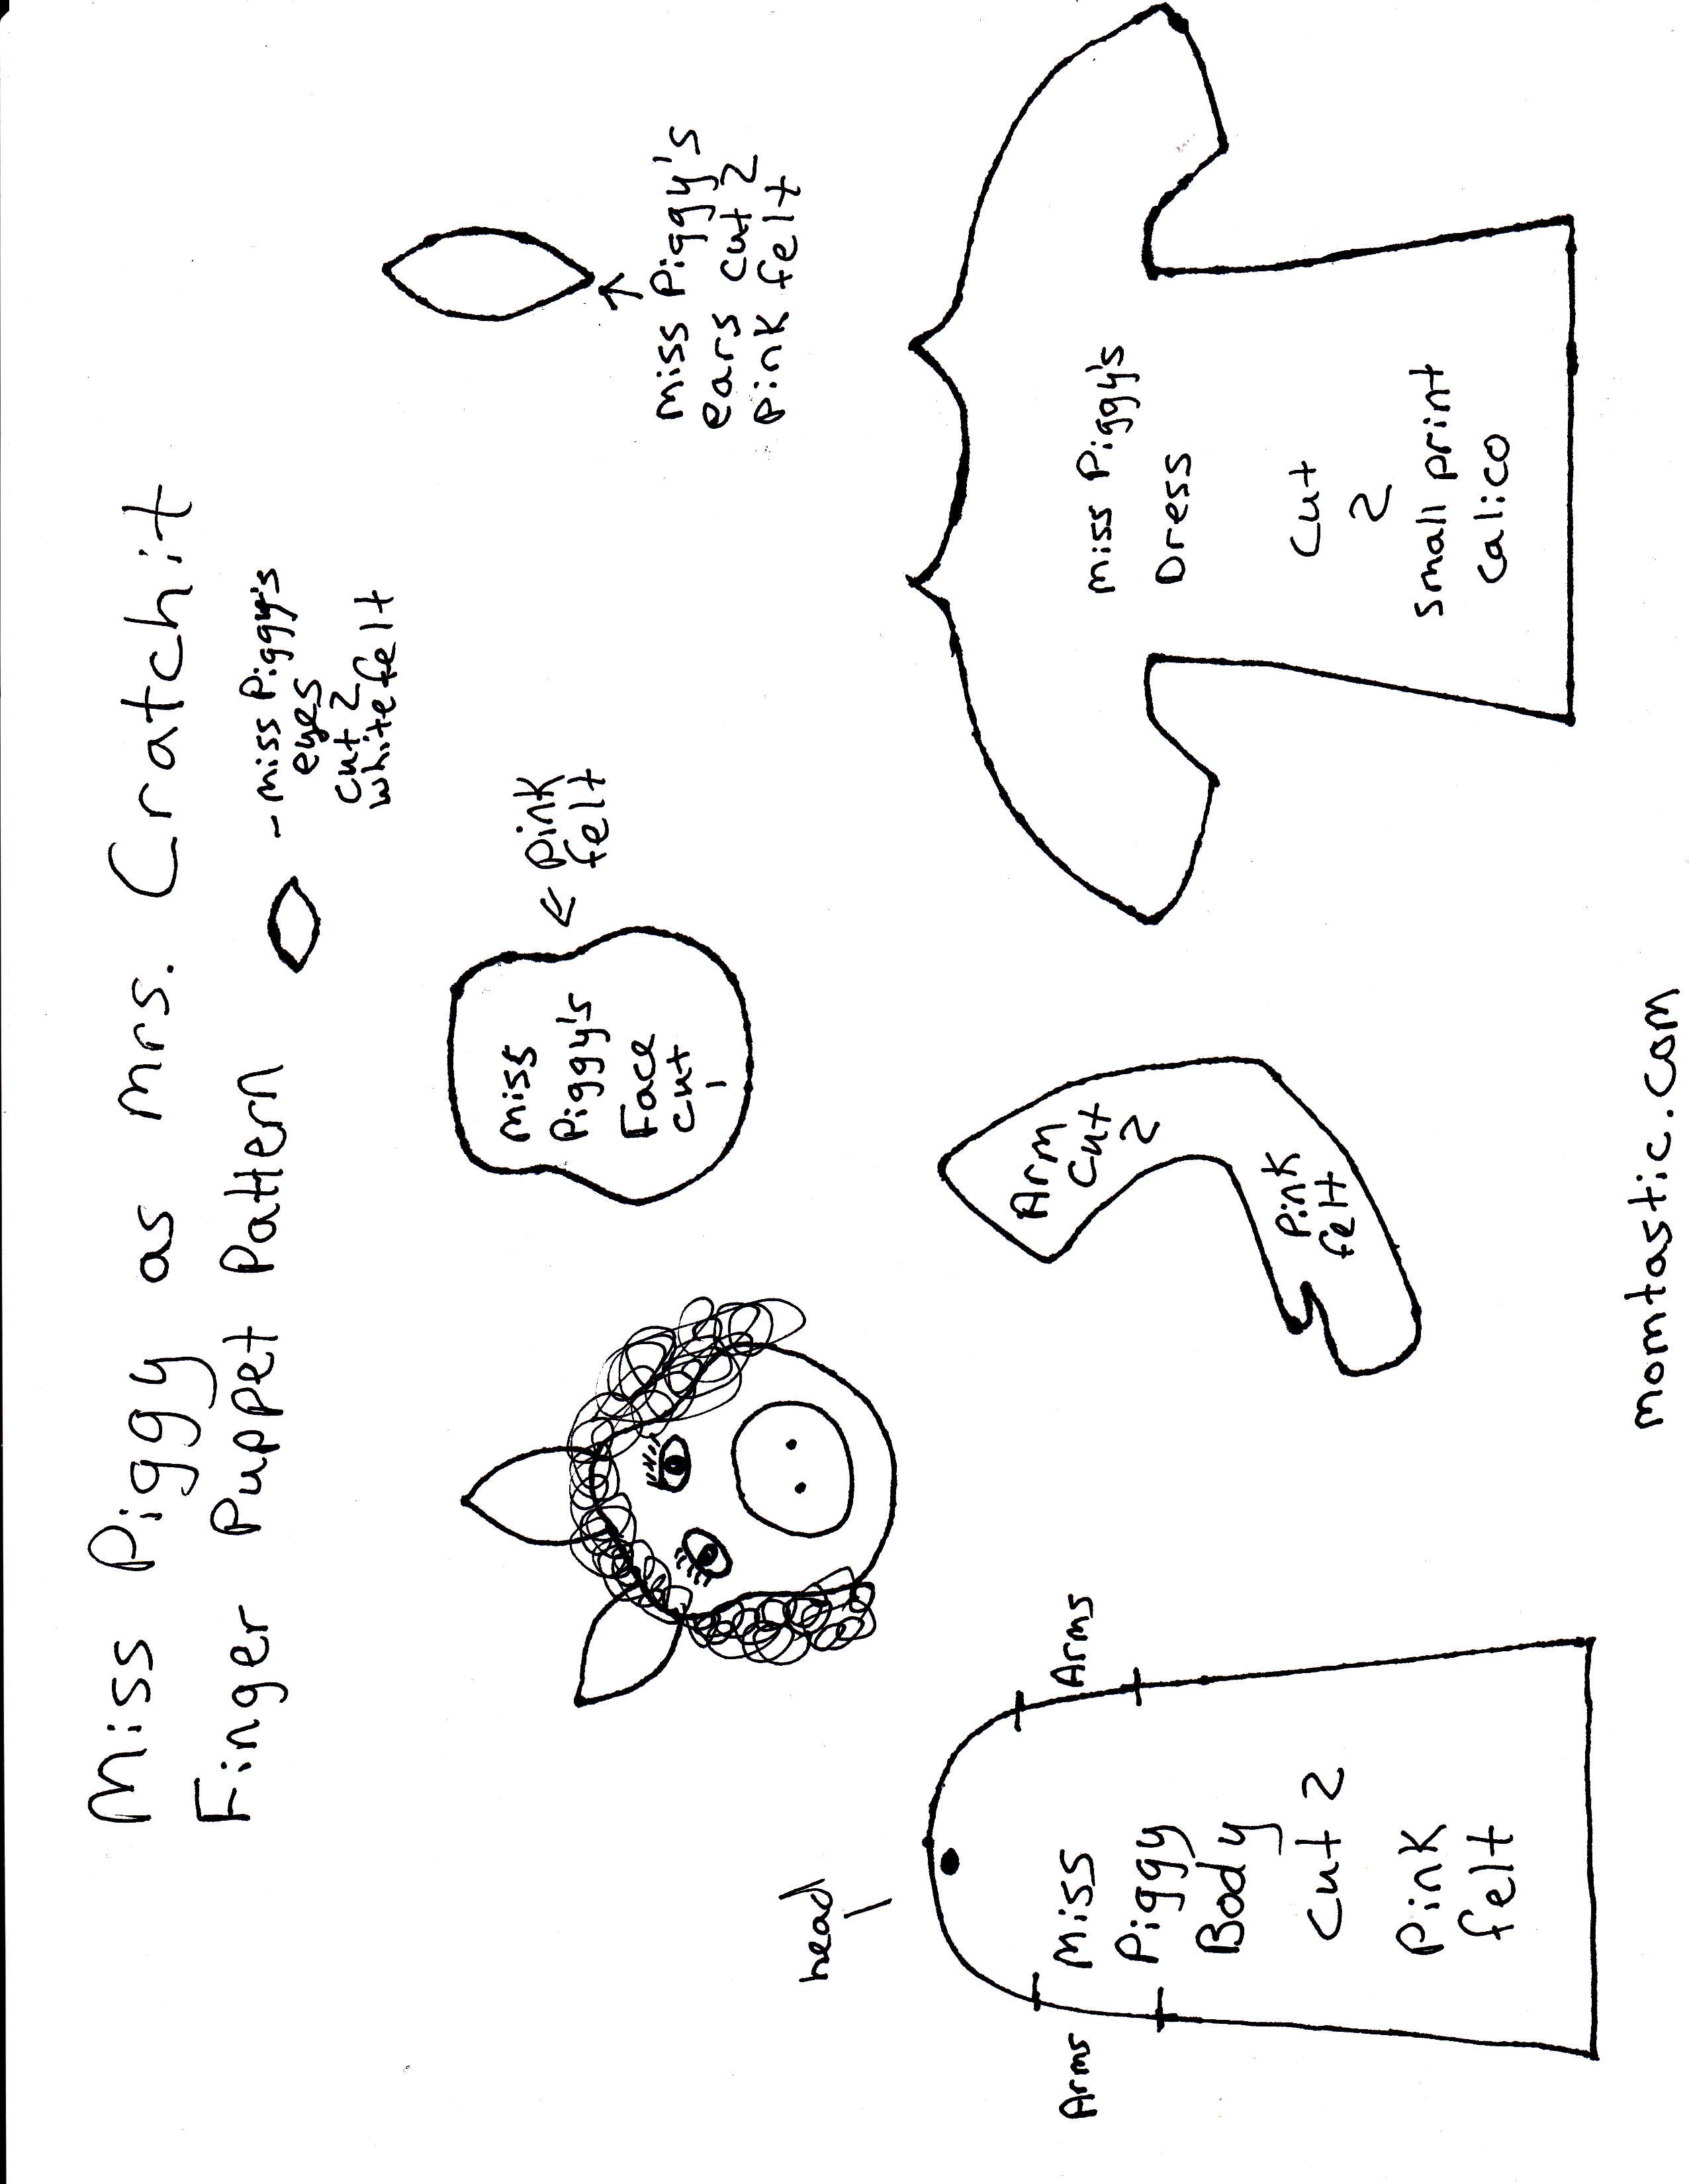 Miss Piggy as Mrs. Cratchit
Finger Puppet Pattern
-miss Piggy's
eyes
cut 2
white felt
miss Piggy's
ears cut 2
pink felt
← pink
felt
miss
Piggy's
Face
cut
1
head
Arms
Arms
Miss
Piggy
Body
cut 2
Pink
felt
Arm
cut
2
Pink
felt
miss Piggy's
Dress
Cut
2
small print
Calico
momtastic.com